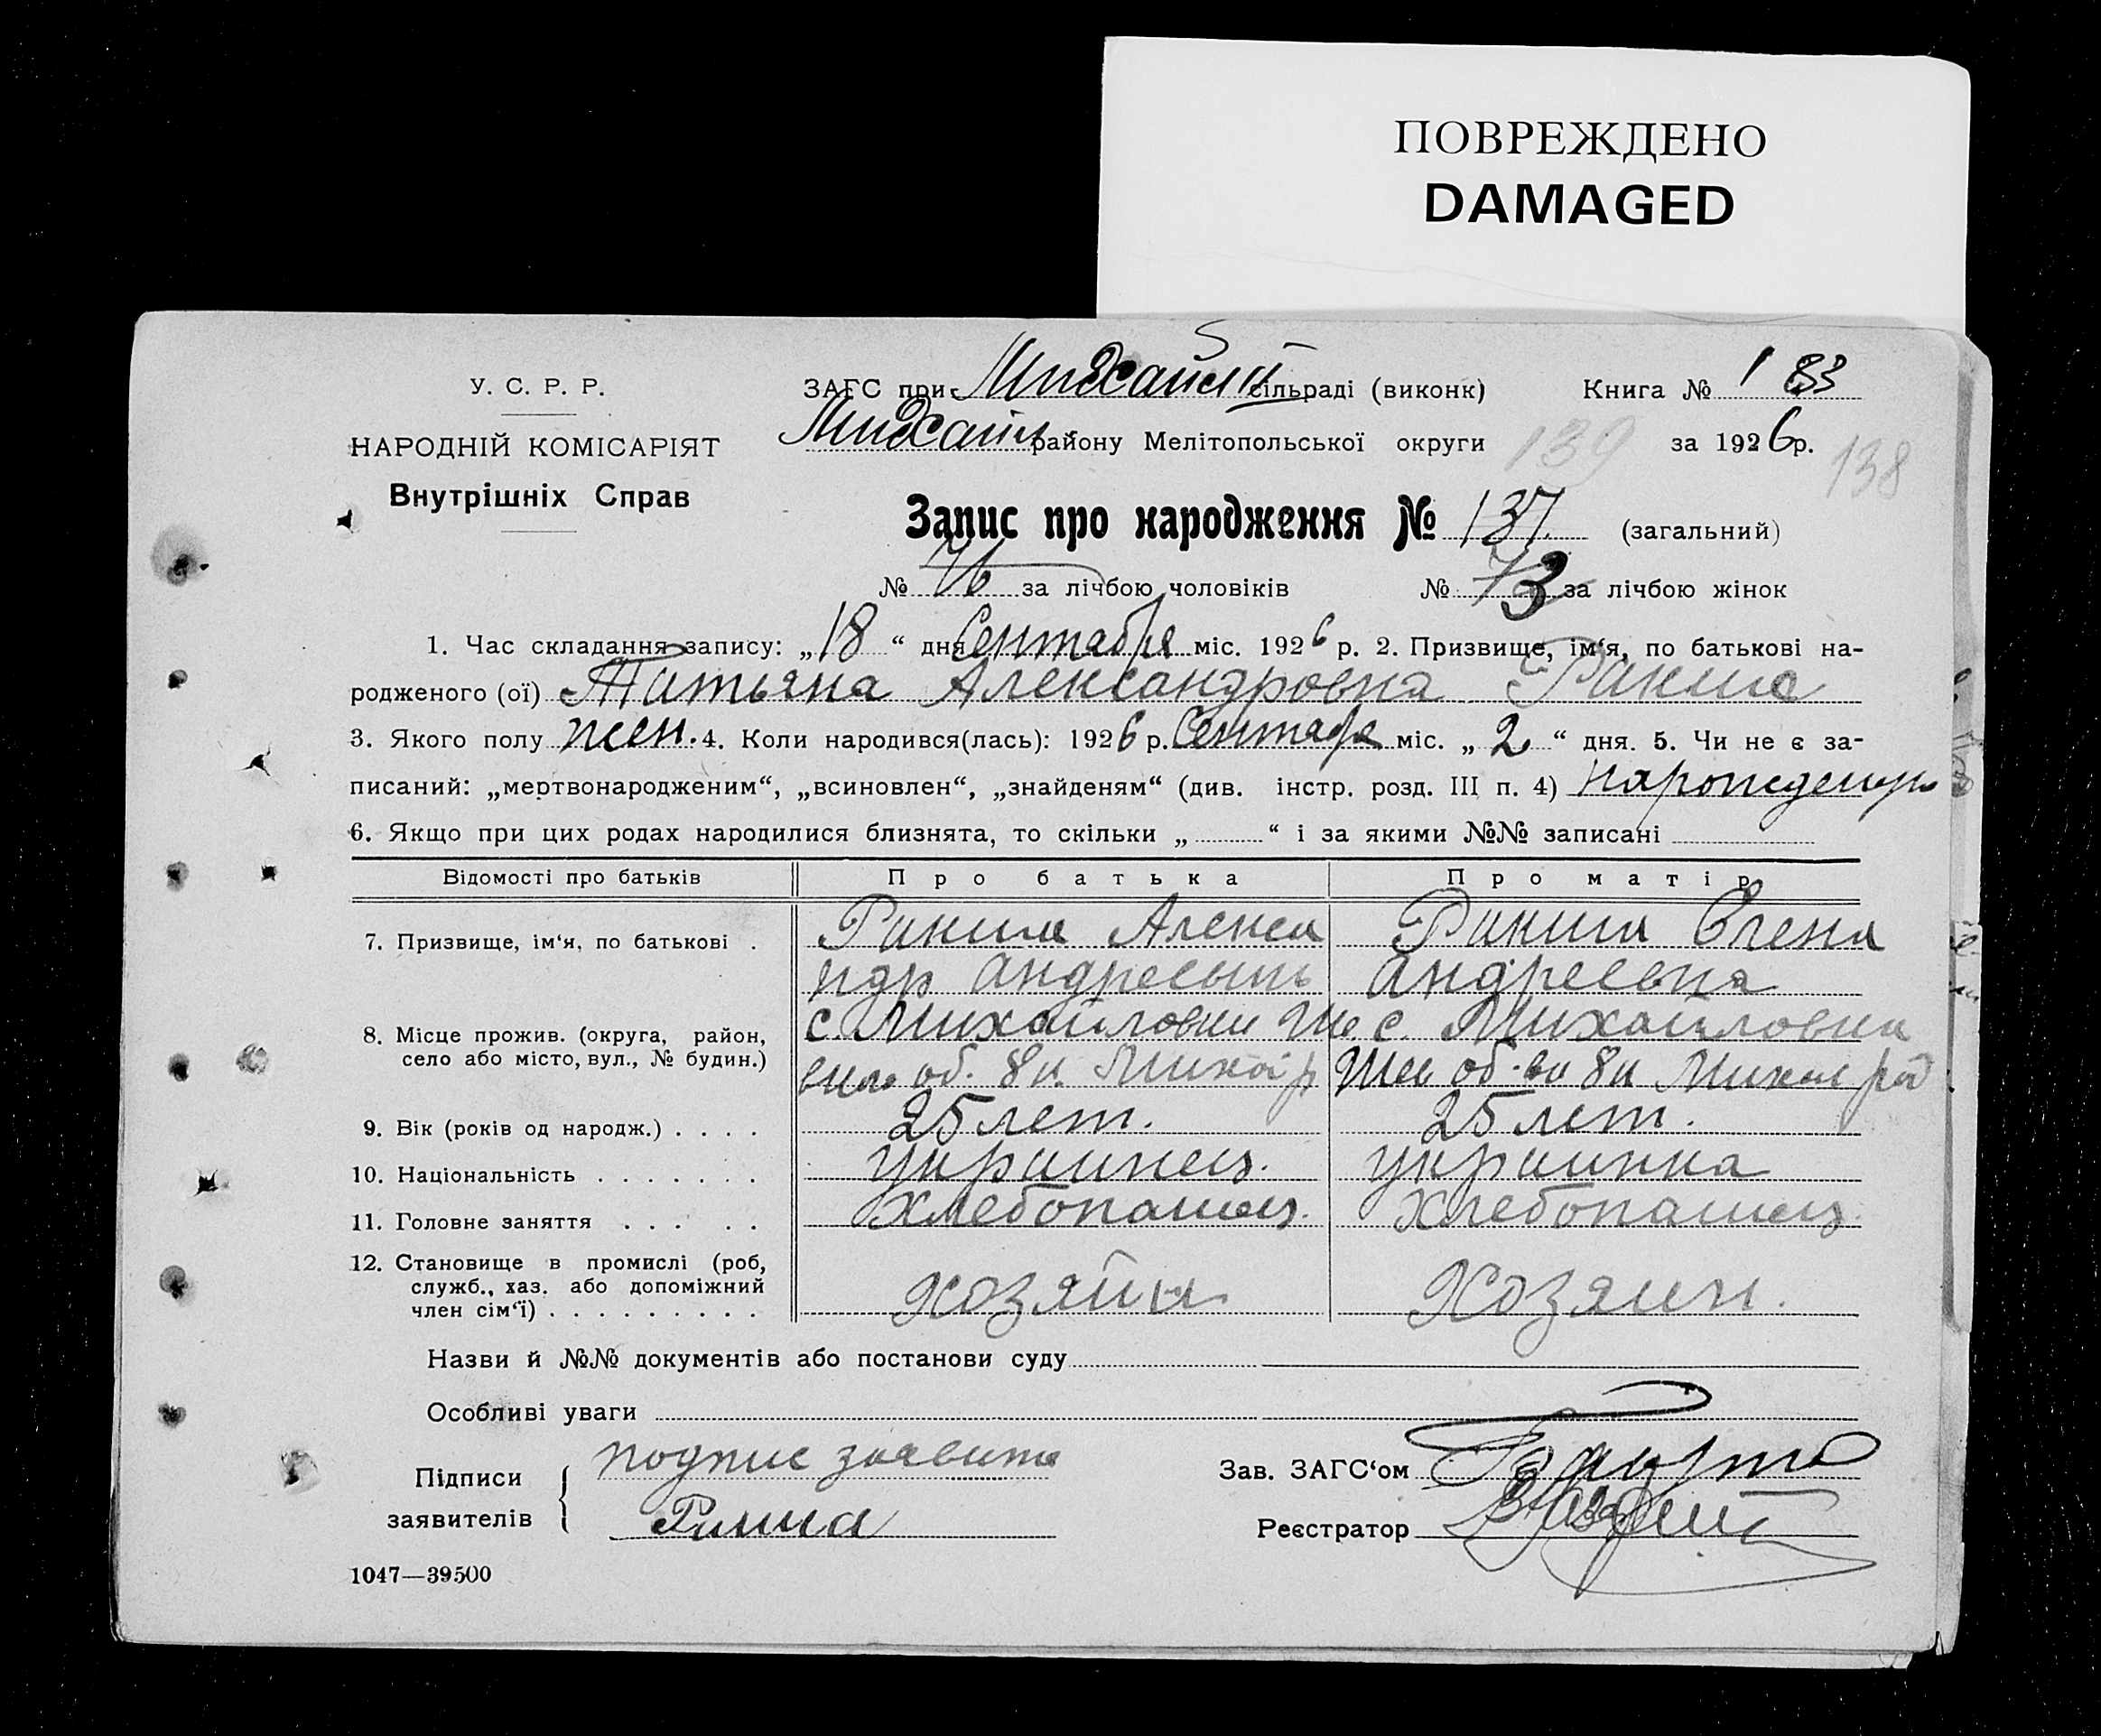 ПОВРЕЖДЕНО
DAMAGED
У. С. Р. Р.
ЗАГС при сільраді (виконк) Книга № 1 83
НАРОДНІЙ КОМІСАРІЯТ
району Мелітопольської округи 139 за 1926 р. 138
Внутрішніх Справ
Запис про народження № 137. (загальний)
№ за лічбою чоловіків № 73 за лічбою жінок
1. Час складання запису: „18“ дня Сентабря міс. 1926 р. 2. Призвище, ім‘я, по батькові на-
родженого (ої) Татьяна Александровна Ракша
3. Якого полу жен. 4. Коли народився(лась): 1926 р. Сентабр міс. „2“ дня. 5. Чи не є за-
писаний: „мертвонародженим“, „всиновлен“, „знайденям“ (див. інстр. розд. III п. 4)
6. Якщо при цих родах народилися близнята, то скільки „ “ і за якими №№ записані
Відомості про батьків Про батька Про матір
7. Призвище, ім‘я, по батькові . Ракша Алекса Ракша Елена
ндр Андреевич Андреевна
8. Місце прожив. (округа, район, с. Михайловки с. Михайловка
село або місто, вул., № будин.) об. 8 8
9. Вік (років од народж.) . . . . 25 лет. 25 лет.
10. Національність . . . . . . . украинец. украинка
11. Головне заняття . . . . . хлебопашец. хлебопашец
12. Становище в промислі (роб,
служб., хаз. або допоміжний
член сім‘ї) . . . . . . . . . хозяин Хозяин.
Назви й №№ документів або постанови суду
Особливі уваги
Підписи подпис заявите
Зав. ЗАГС‘ом
заявителів Ракша
Реєстратор
1047—39500